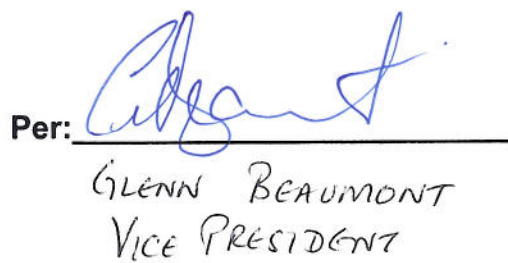 Per:
GLENN BEAUMONT
VICE PRESIDENT